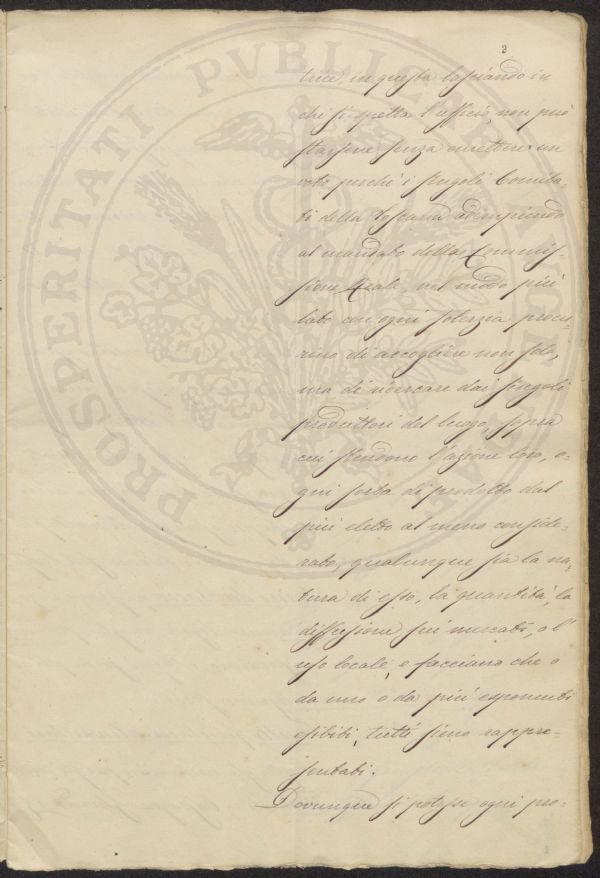 3
trice, in questa lasciando in
chi si spetta l'ufficio, non può
starsene senza emettere un
voto perchè i singoli Comita-
ti della Toscana adempiendo
al mandato della Commis-
sione Reale, nel modo più
lato con ogni solerzia procu-
rino di accogliere non solo,
ma di ricercare dai singoli
produttori del luogo, sopra
cui stendono l'azione loro, o-
gni sorta di prodotto dal
più eletto al meno conside-
rato, qualunque sia la na-
tura di esso, la quantità, la
diffusione sui mercati, o l'
uso locale, e facciano che o
da uno o da più esponenti
esibiti, tutti sieno rappre-
sentati.
Dovunque si potesse ogni pro-
PROSPERITATI PVBLICAE AVGENDAE